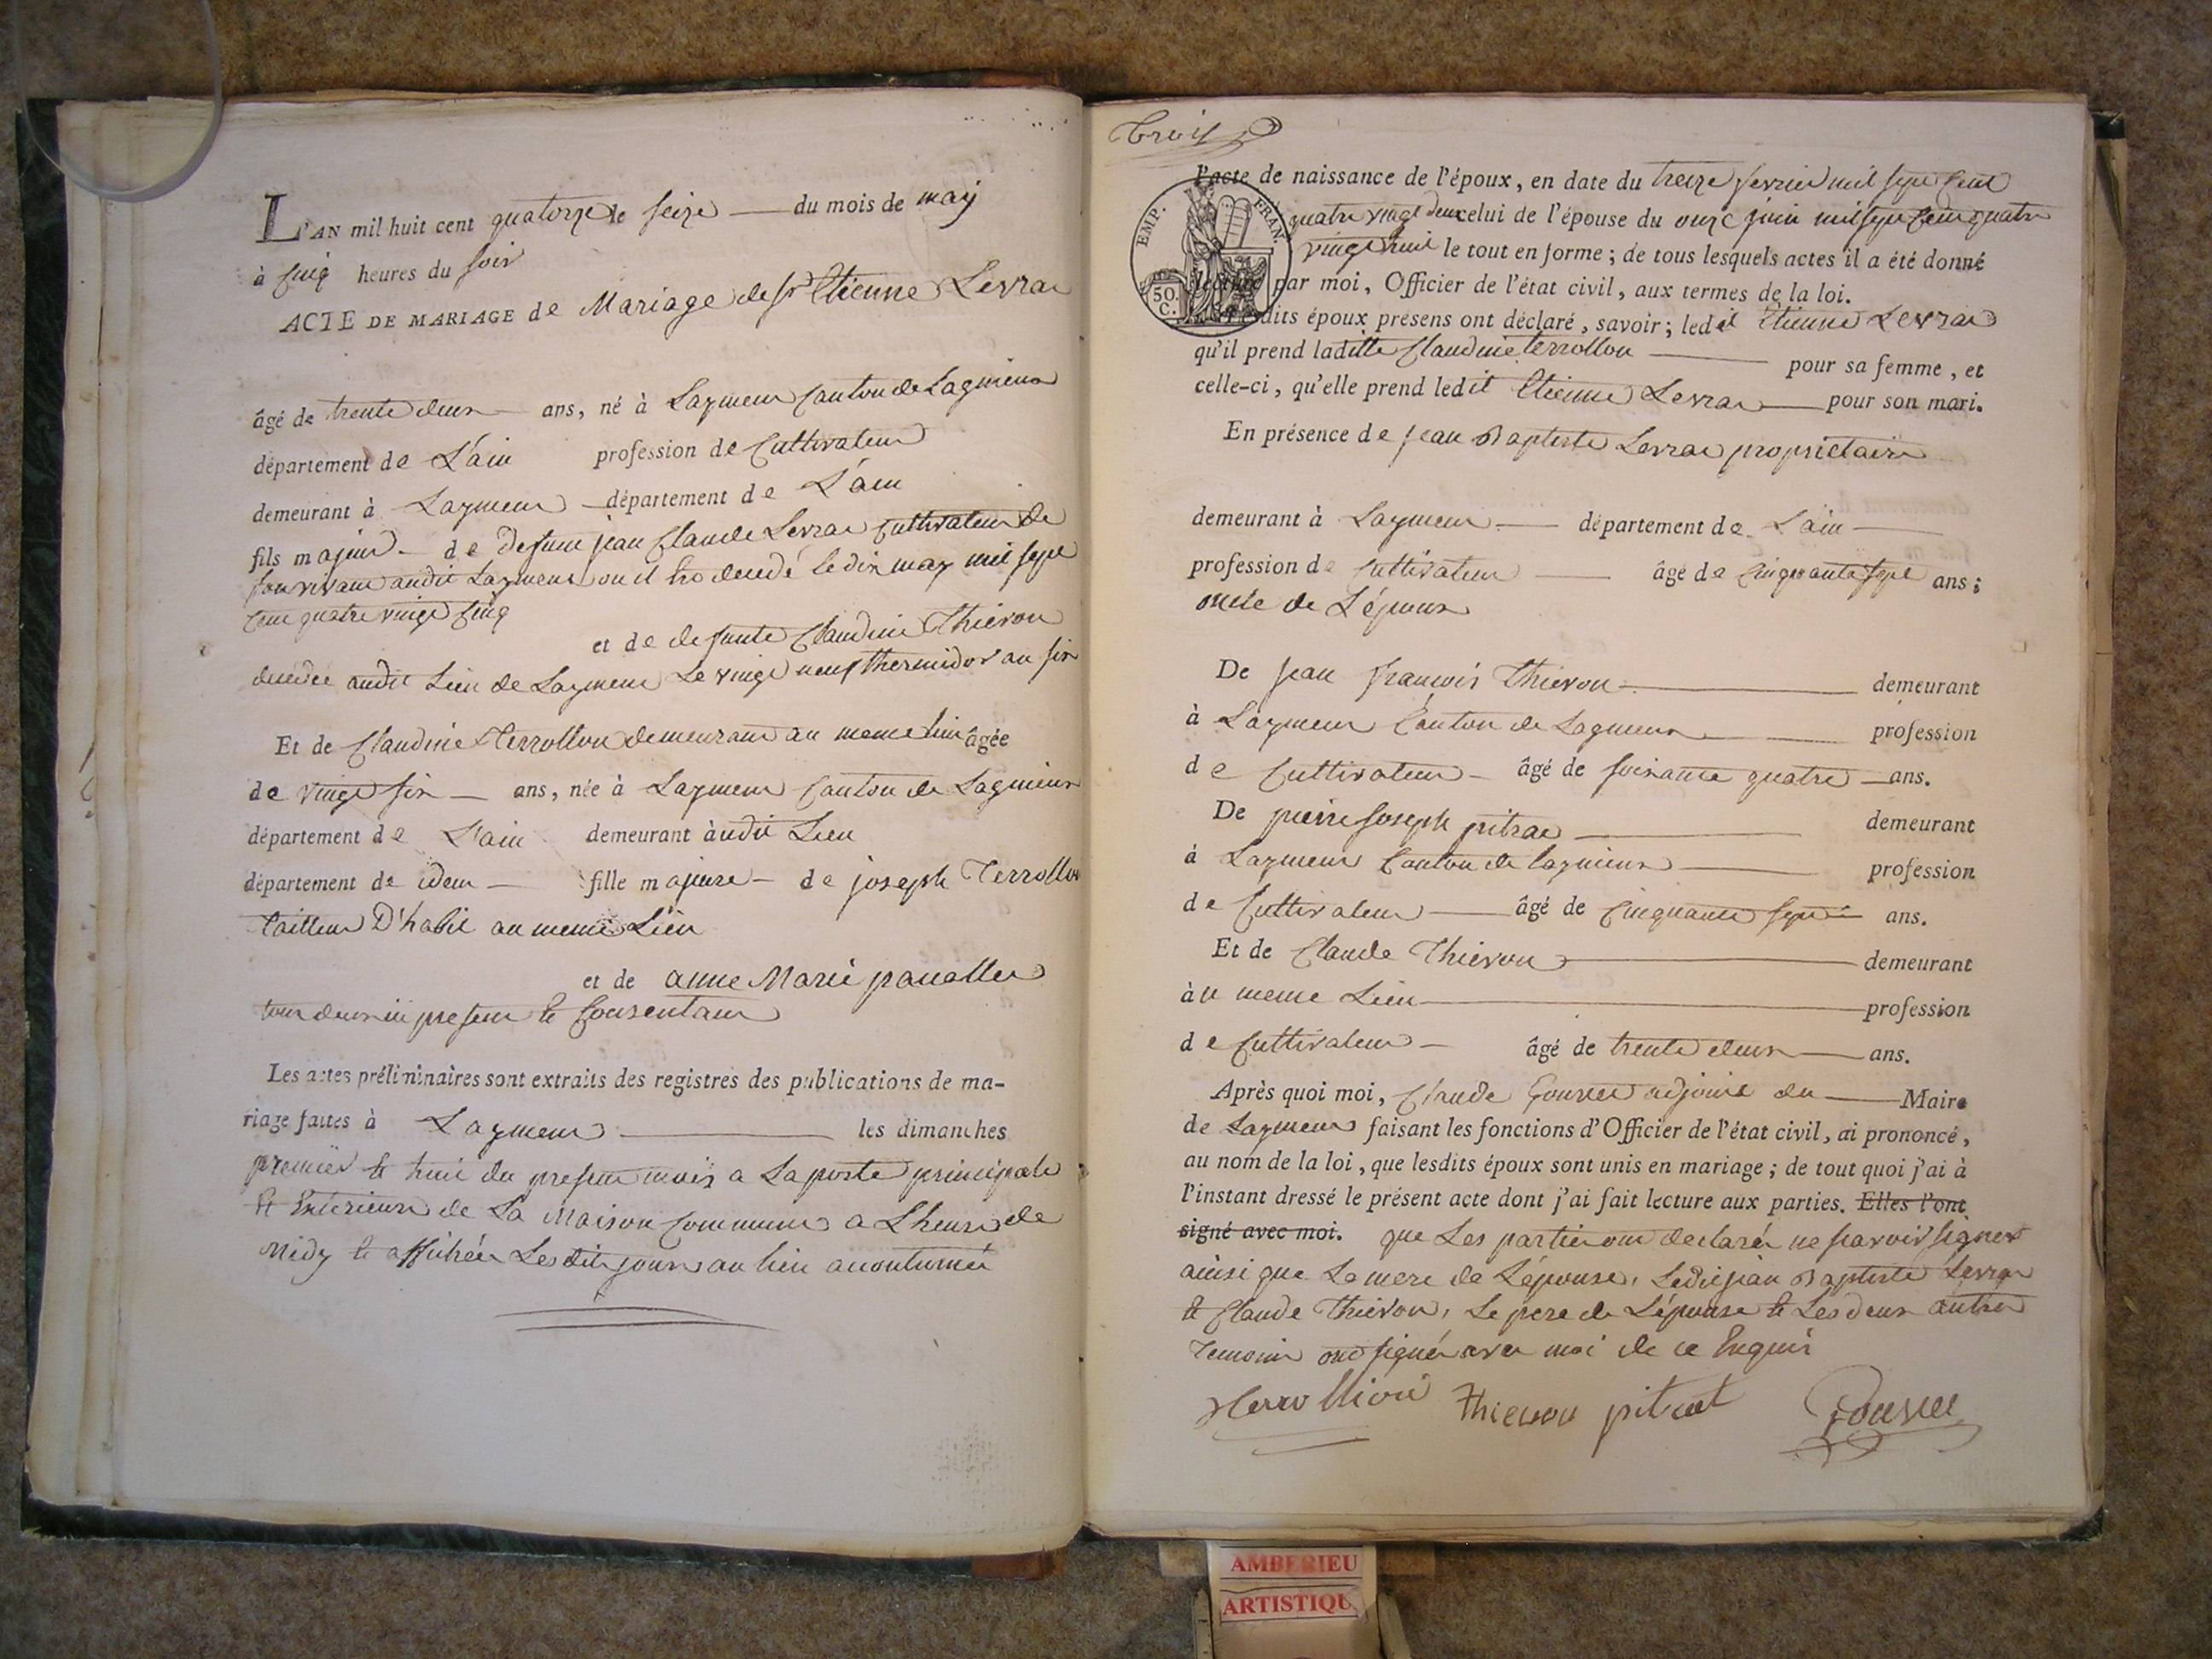 L'AN mil huit cent quatorze le seize du mois de may
à cinq heures du soir
ACTE DE MARIAGE de Mariage de sr Etienne Levrat
âgé de trente deux ans, né à Laymeur Canton de Lagnieux
département de L'ain profession de Cultivateur
demeurant à Laymeur département de L'ain
fils majeur de defunt jean Claude Levrat Cultivateur de
son vivant audit Laymeur ou il est decedé le dix may mil sept
cent quatre vingt cinq
et de defunte Claudine Thievon
decedée audit Lieu de Laymeur Le vingt neuf thermidor an six
Et de Claudine Terrollion demeurant au meme lieu âgée
de vingt six ans, née à Laymeur Canton de Lagnieux
département de L'ain demeurant àudit Lieu
département de idem fille majeure de joseph Terrollion
tailleur D'habit au meme Lieu
et de anne Marie
tous deux ici present et Consentant
Les actes préliminaires sont extraits des registres des publications de ma-
riage faites à Laymeur les dimanches
premier et huit du present mois a La porte principale
Et Exterieure de La Maison Commune a L'heure de
Midy et affichées Les dits jours au lieu accoutumé
Trois
l'acte de naissance de l'époux, en date du treize fevrier mil sept cent
quatre vingt deux celui de l'épouse du onze juin mil sept cent quatre
vingt huit le tout en forme ; de tous lesquels actes il a été donné
EMP. FRAN.
50. C.
lecture par moi, Officier de l'état civil, aux termes de la loi.
Lesdits époux présens ont déclaré, savoir ; ledit Etienne Levrat
qu'il prend laditte Claudine terrollion pour sa femme, et
celle-ci, qu'elle prend ledit Etienne Levrat pour son mari.
En présence de jean Baptiste Levrat proprietaire
demeurant à Laymeur département de L'ain
profession de Cultivateur âgé de Cinquante sept ans ;
oncle de L'époux
De jean françois Thievon demeurant
à Laymeur Canton de Lagnieux profession
de Cultivateur âgé de soixante quatre ans.
De pierre joseph pitrat demeurant
à Laymeur Canton de lagnieux profession
de Cultivateur âgé de Cinquante sept ans.
Et de Claude Thievon demeurant
àu meme Lieu profession
de Cultivateur âgé de trente deux ans.
Après quoi moi, Claude adjoint du Maire
de Laymeur faisant les fonctions d'Officier de l'état civil, ai prononcé,
au nom de la loi, que lesdits époux sont unis en mariage ; de tout quoi j'ai à
l'instant dressé le présent acte dont j'ai fait lecture aux parties. Elles l'ont
signé avec moi. que Les parties ont declarés ne scavoir signer
ainsi que La mere de L'épouse, Ledit jean Baptiste Levrat
et Claude Thievon, Le pere de L'épouse et Les deux autres
Temoins ont signés avec moi de ce Enquis
Thievon pitrat
AMBERIEU
ARTISTIQU